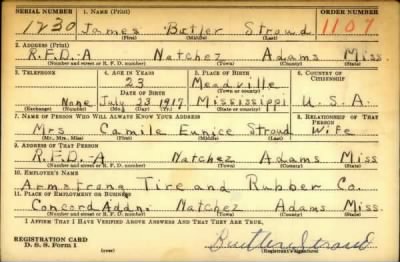 SERIAL NUMBER 1. NAME (Print) ORDER NUMBER
1230 James Butler Stroud 1107
(First) (Middle) (Last)
2. ADDRESS (Print)
R.F.D.-A Natchez Adams Miss.
(Number and street or R. F. D. number) (Town) (County) (State)
3. TELEPHONE 4. AGE IN YEARS 5. PLACE OF BIRTH 6. COUNTRY OF CITIZENSHIP
23 Meadville
DATE OF BIRTH (Town or county)
None July 23 1917 Mississippi U.S.A.
(Exchange) (Number) (Mo.) (Day) (Yr.) (State or country)
7. NAME OF PERSON WHO WILL ALWAYS KNOW YOUR ADDRESS 8. RELATIONSHIP OF THAT PERSON
Mrs Camile Eunice Stroud Wife
(Mr., Mrs., Miss) (First) (Middle) (Last)
9. ADDRESS OF THAT PERSON
R.F.D.-A Natchez Adams Miss
(Number and street or R. F. D. number) (Town) (County) (State)
10. EMPLOYER'S NAME
Armstrong Tire and Rubber Co.
11. PLACE OF EMPLOYMENT OR BUSINESS
Concord Addn. Natchez Adams Miss.
(Number and street or R. F. D. number) (Town) (County) (State)
I AFFIRM THAT I HAVE VERIFIED ABOVE ANSWERS AND THAT THEY ARE TRUE.
REGISTRATION CARD
D. S. S. Form 1 (over) Butler Stroud
(Registrant's signature)